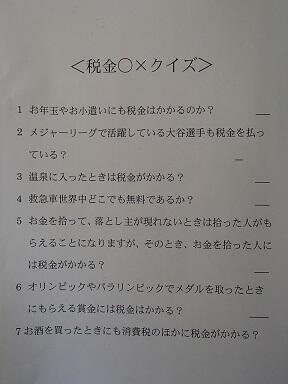 ＜税金○×クイズ＞
1 お年玉やお小遣いにも税金はかかるのか？
2 メジャーリーグで活躍している大谷選手も税金を払っ
ている？
3 温泉に入ったときは税金がかかる？
4 救急車世界中どこでも無料であるか？
5 お金を拾って、落とし主が現れないときは拾った人がも
らえることになりますが、そのとき、お金を拾った人に
は税金がかかる？
6 オリンピックやパラリンピックでメダルを取ったとき
にもらえる賞金には税金はかかる？
7 お酒を買ったときにも消費税のほかに税金がかかる？